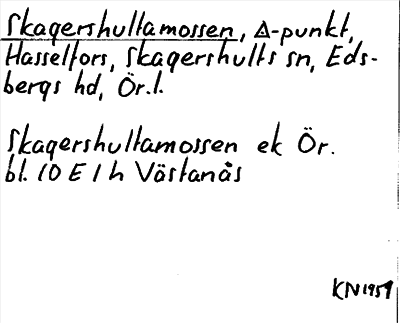 Skagershultamossen, △-punkt,
Hasselfors, Skagershults sn, Eds-
bergs hd, Ör.l.
Skagershultamossen ek Ör.
bl. 10 E 1 h Västanås
KN 1959